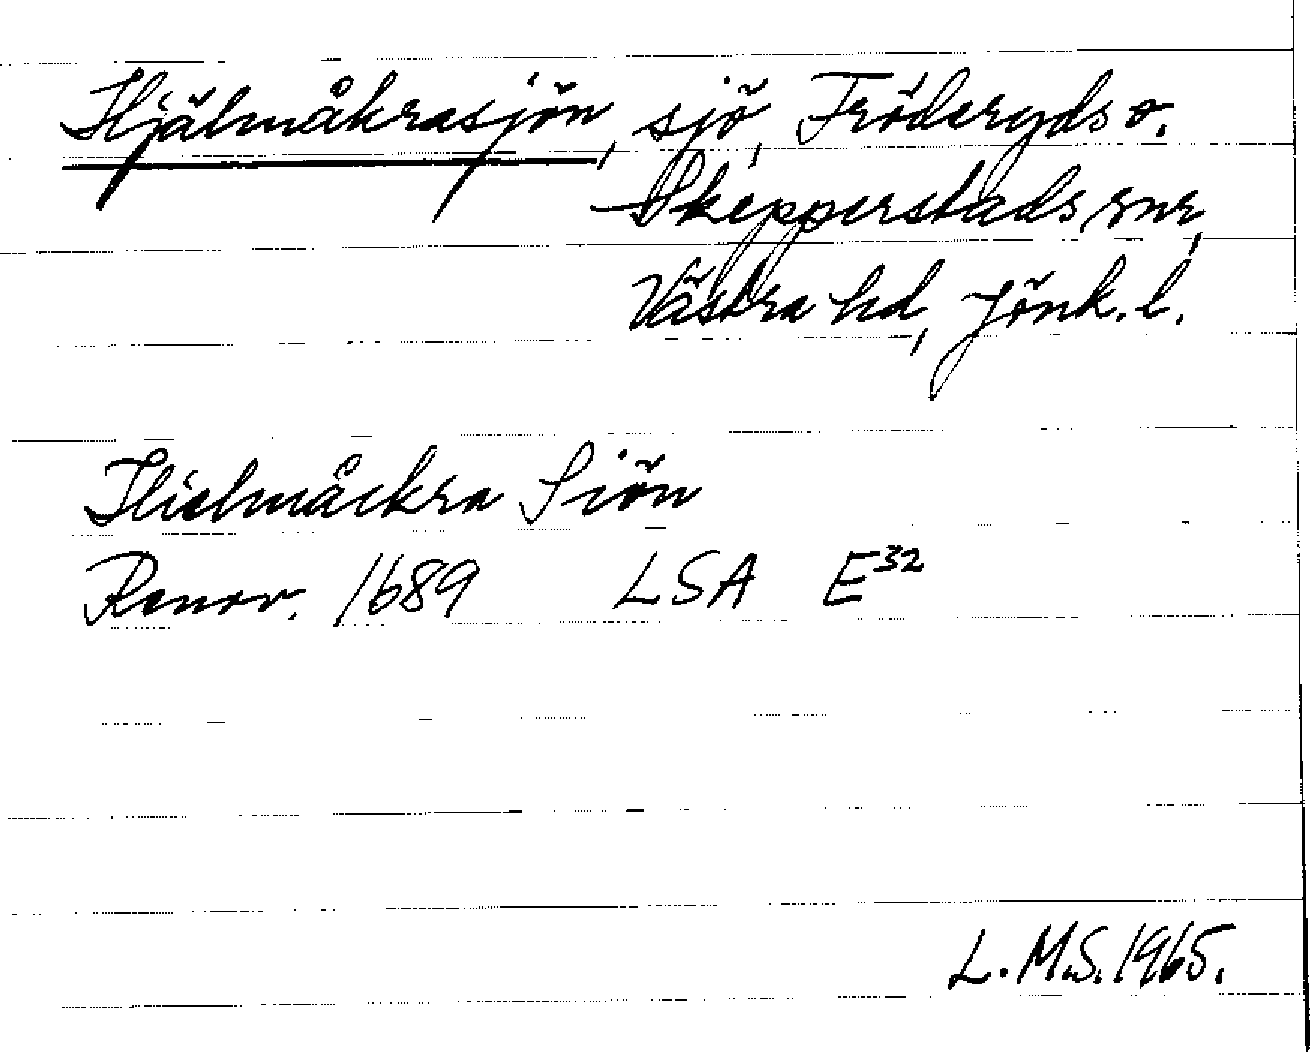 Hjälmåkrasjön, sjö, Fröderyds o.
Skepperstads snr,
Västra hd, Jönk. l.
Hielmåckra Siön
Renov. 1689 LSA E³²
L.M.S. 1965.